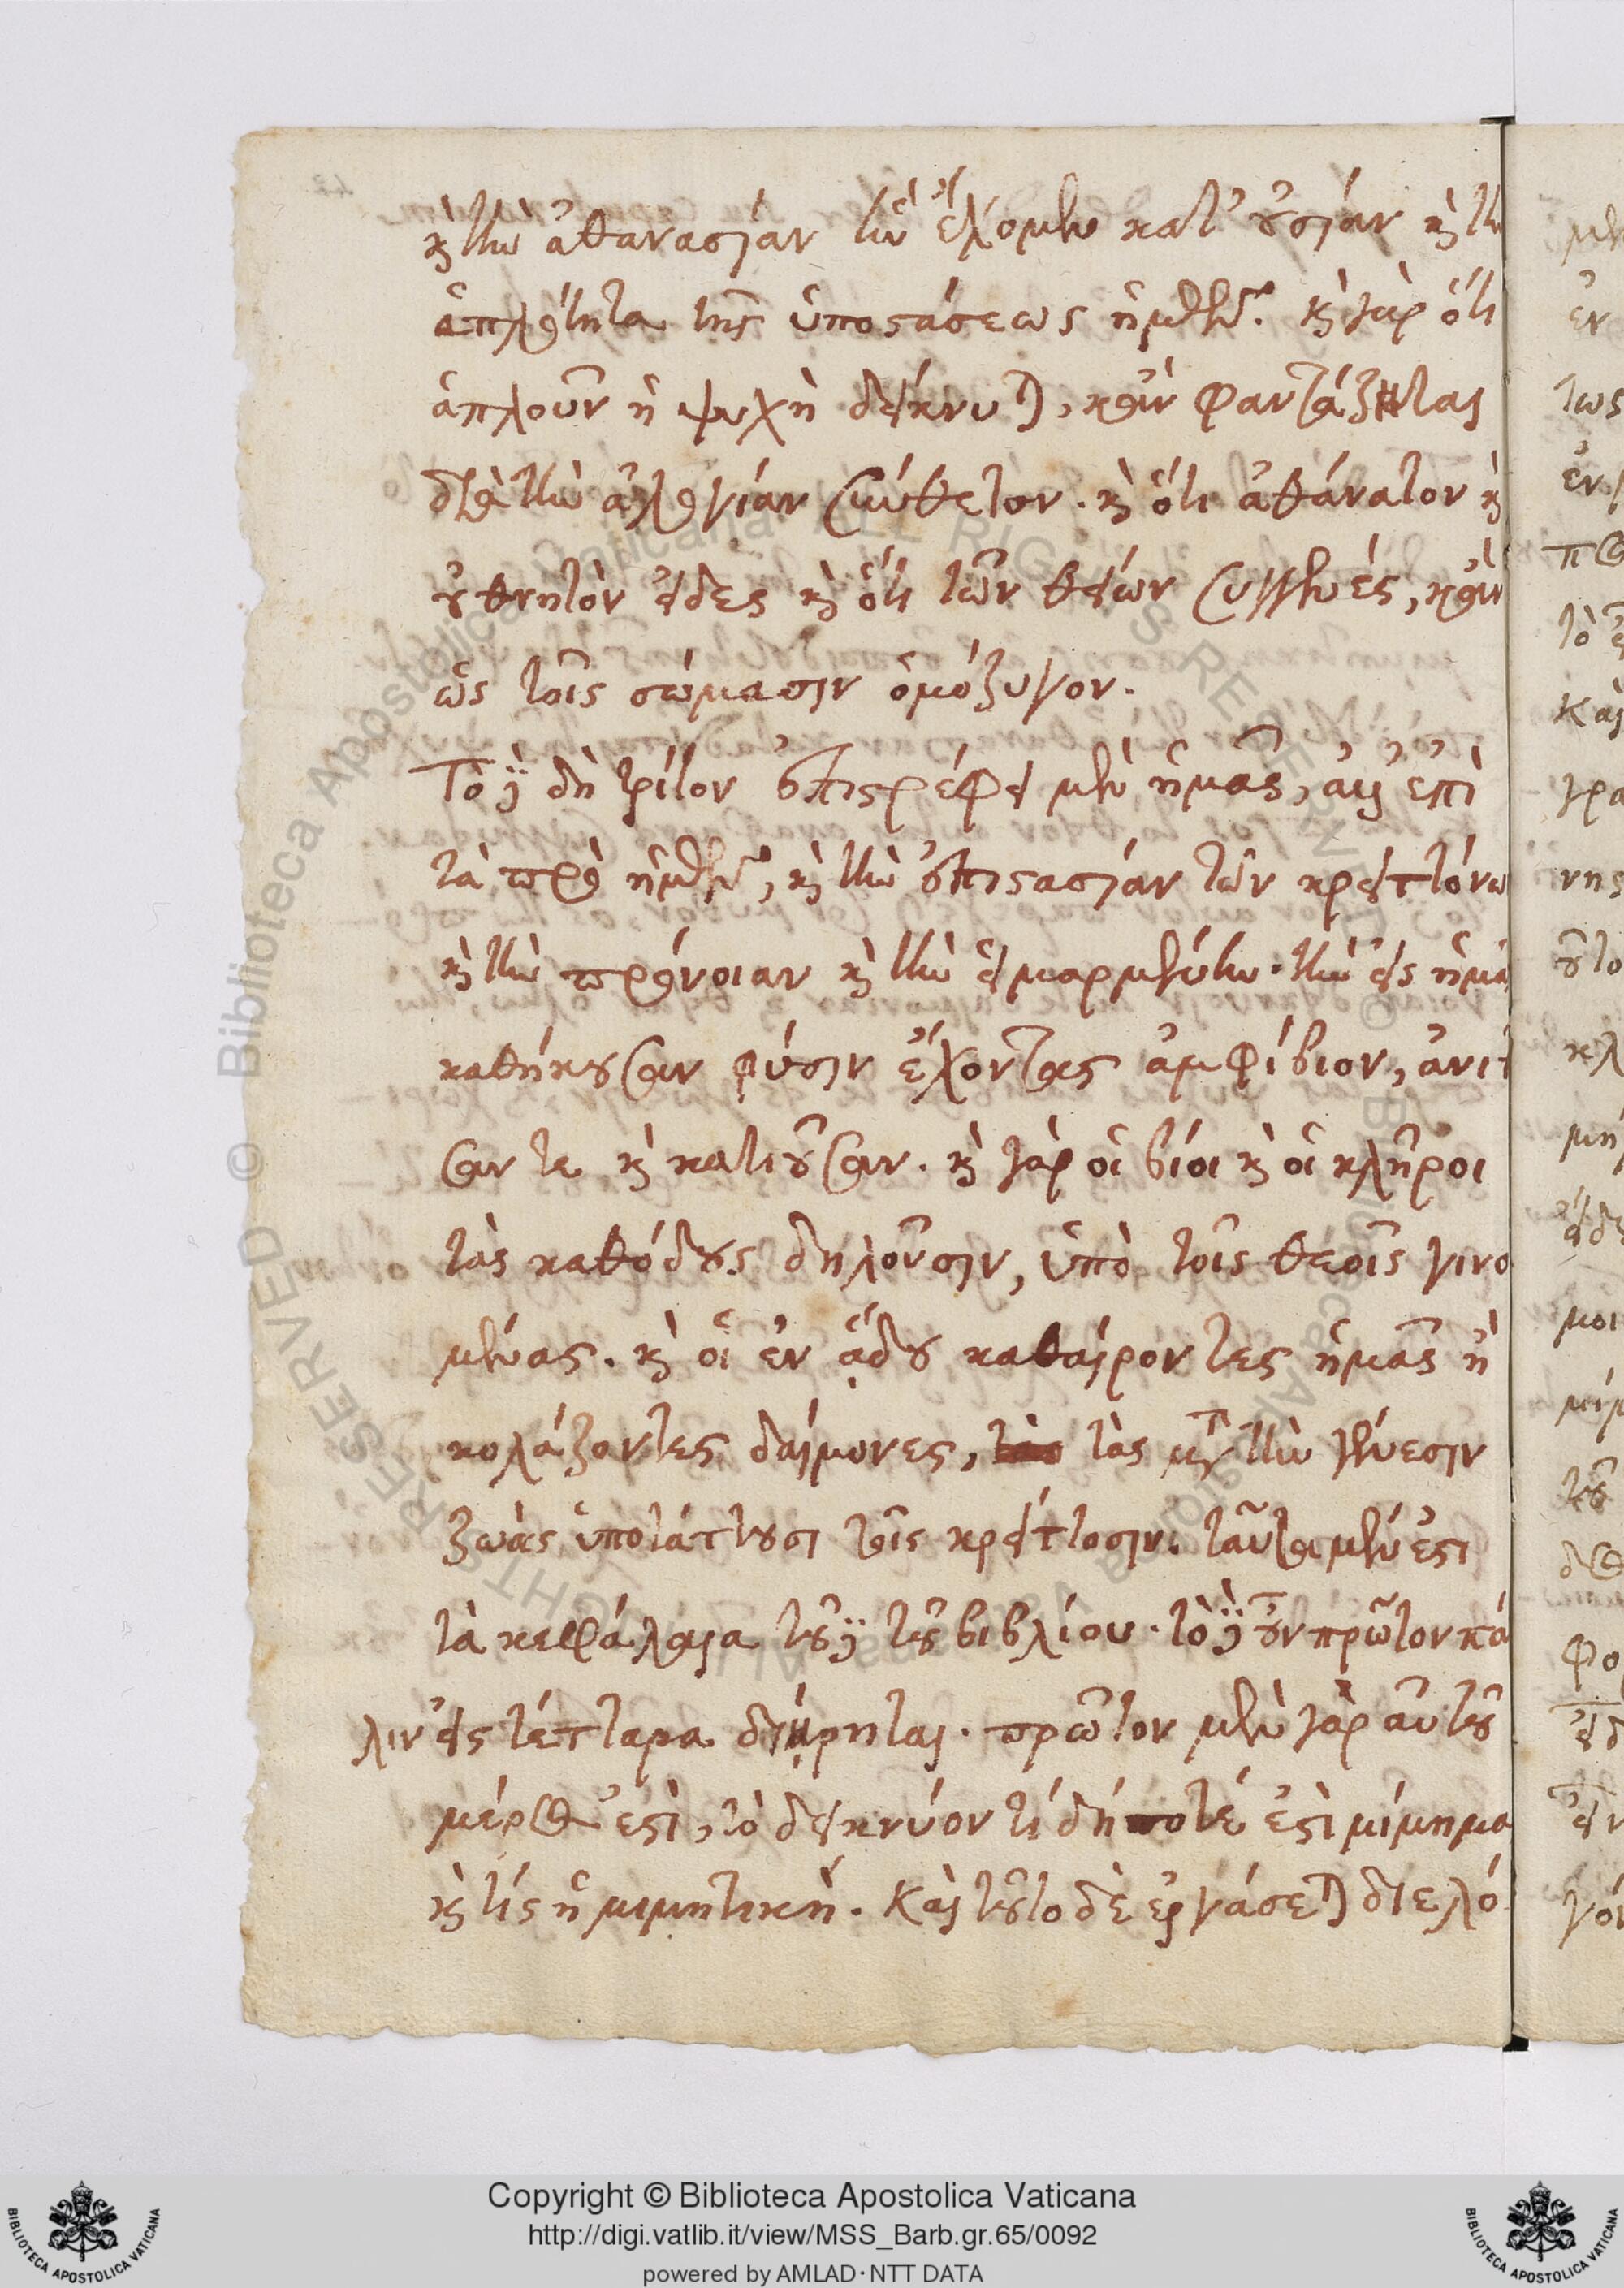 καὶ τὴν ἀθανασίαν ἣν ἔχομεν κατ' οὐσίαν καὶ τὴν
ἁπλότητα τῆς ὑποστάσεως ἡμῶν. καὶ γὰρ ὅτι
ἁπλοῦν ἡ ψυχὴ δείκνυται, κἂν φαντάζηται
διὰ τὴν ἀλογίαν σύνθετον. καὶ ὅτι ἀθάνατον καὶ
οὐ θνητὸν εἶδες καὶ ὅτι τῶν θείων συγγενές, κἂν
ὡς τοῖς σώμασιν ὁμόζυγον.
Τὸ γ δὴ τρίτον ἐπιστρέφει μὲν ἡμᾶς, ἀεὶ ἐπὶ
τὰ πρὸ ἡμῶν, καὶ τὴν ἐπιστασίαν τῶν κρειττόνων
καὶ τὴν πρόνοιαν καὶ τὴν εἱμαρμένην. τὴν εἰς ἡμᾶς
καθήκουσαν φύσιν ἔχοντας ἀμφίβιον, ἀνιοῦ
σαν τε καὶ κατιοῦσαν. καὶ γὰρ οἱ βίοι καὶ οἱ κλῆροι
τὰς καθόδους δηλοῦσιν, ὑπὸ τοῖς θεοῖς γινο
μένας. καὶ οἱ ἐν ᾅδου καθαίροντες ἡμᾶς ἢ
κολάζοντες δαίμονες, τὰς μετὰ τὴν γένεσιν
ζωὰς ὑποτάττουσι τοῖς κρείττοσιν. ταῦτα μέν ἐστι
τὰ κεφάλαια τοῦ γ τοῦ βιβλίου. τὸ γ οὖν πρῶτον πά
λιν εἰς τέτταρα διῄρηται. πρῶτον μὲν γὰρ αὐτοῦ
μέρος ἐστὶ, τὸ δεικνύον τί δήποτέ ἐστι μίμημα
καὶ τίς ἡ μιμητική. Καὶ τοῦτο δὲ ἐργάσεται διελό
Copyright © Biblioteca Apostolica Vaticana
http://digi.vatlib.it/view/MSS_Barb.gr.65/0092
powered by AMLAD·NTT DATA